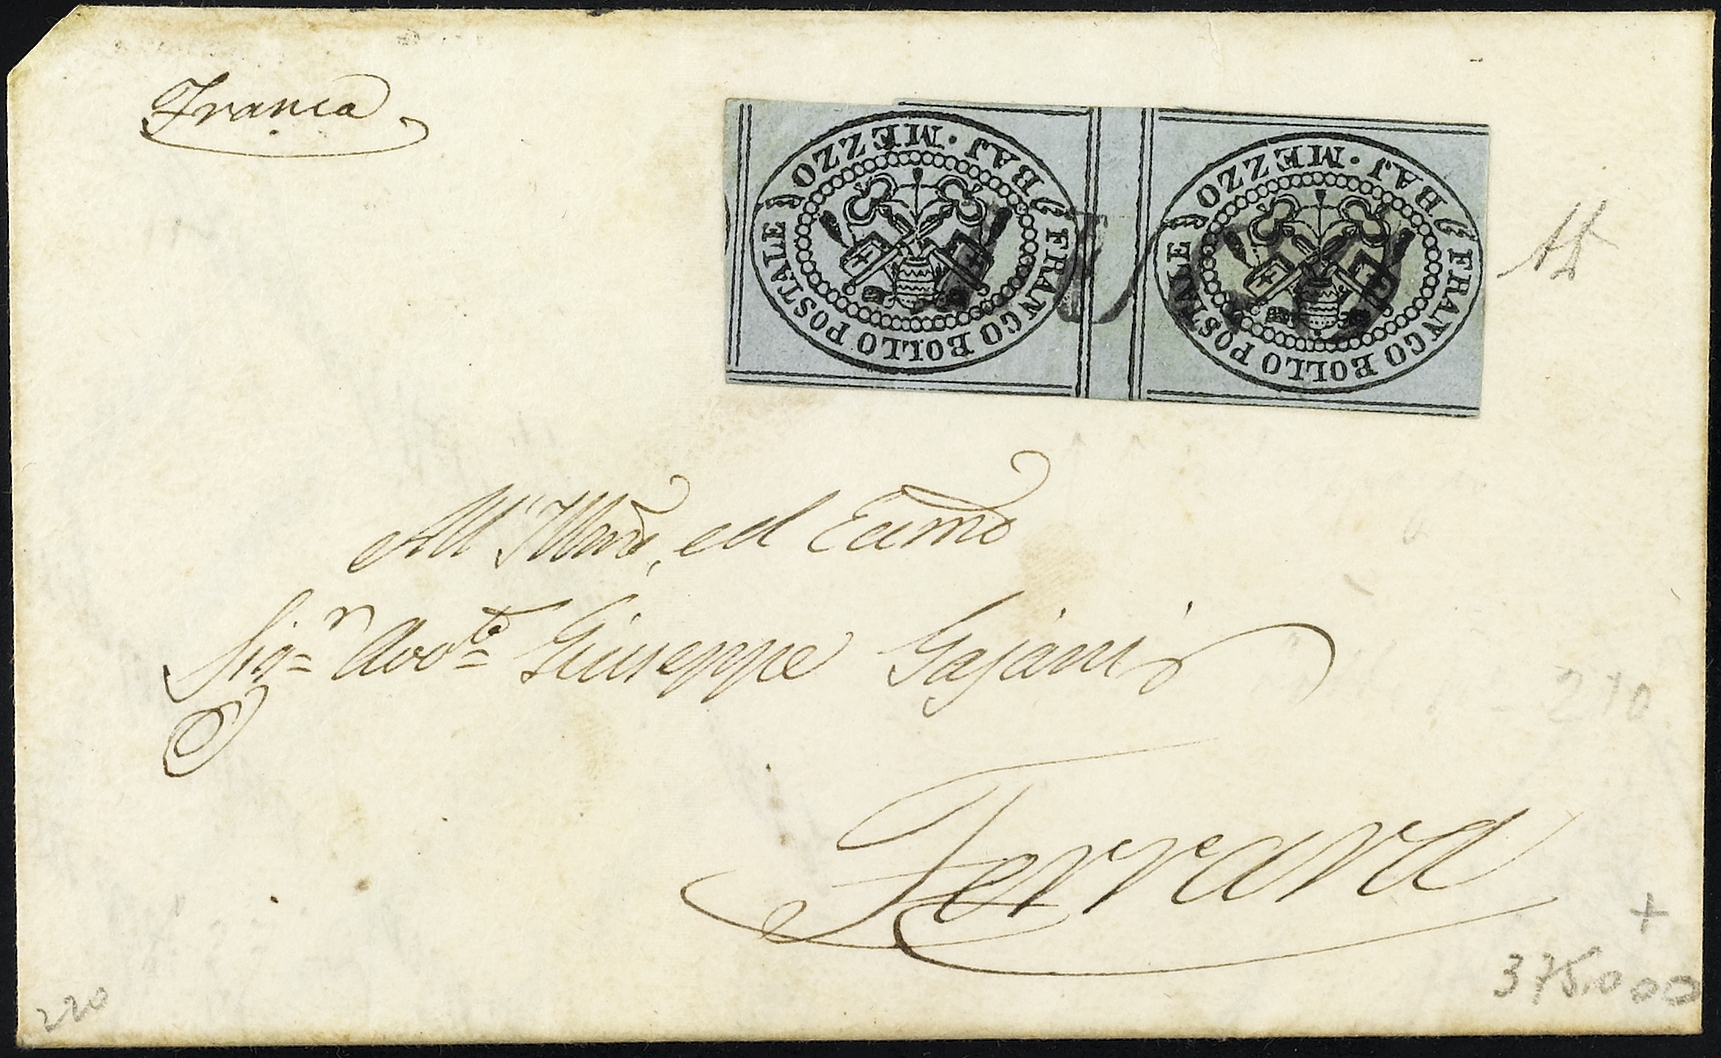 Franca
BAJ. MEZZO
FRANCO BOLLO POSTALE
BAJ. MEZZO
FRANCO BOLLO POSTALE
All' Illmo, ed Eccmo
Sigr Avvto Giuseppe Gajani
Ferrara
210
+
375.000
220